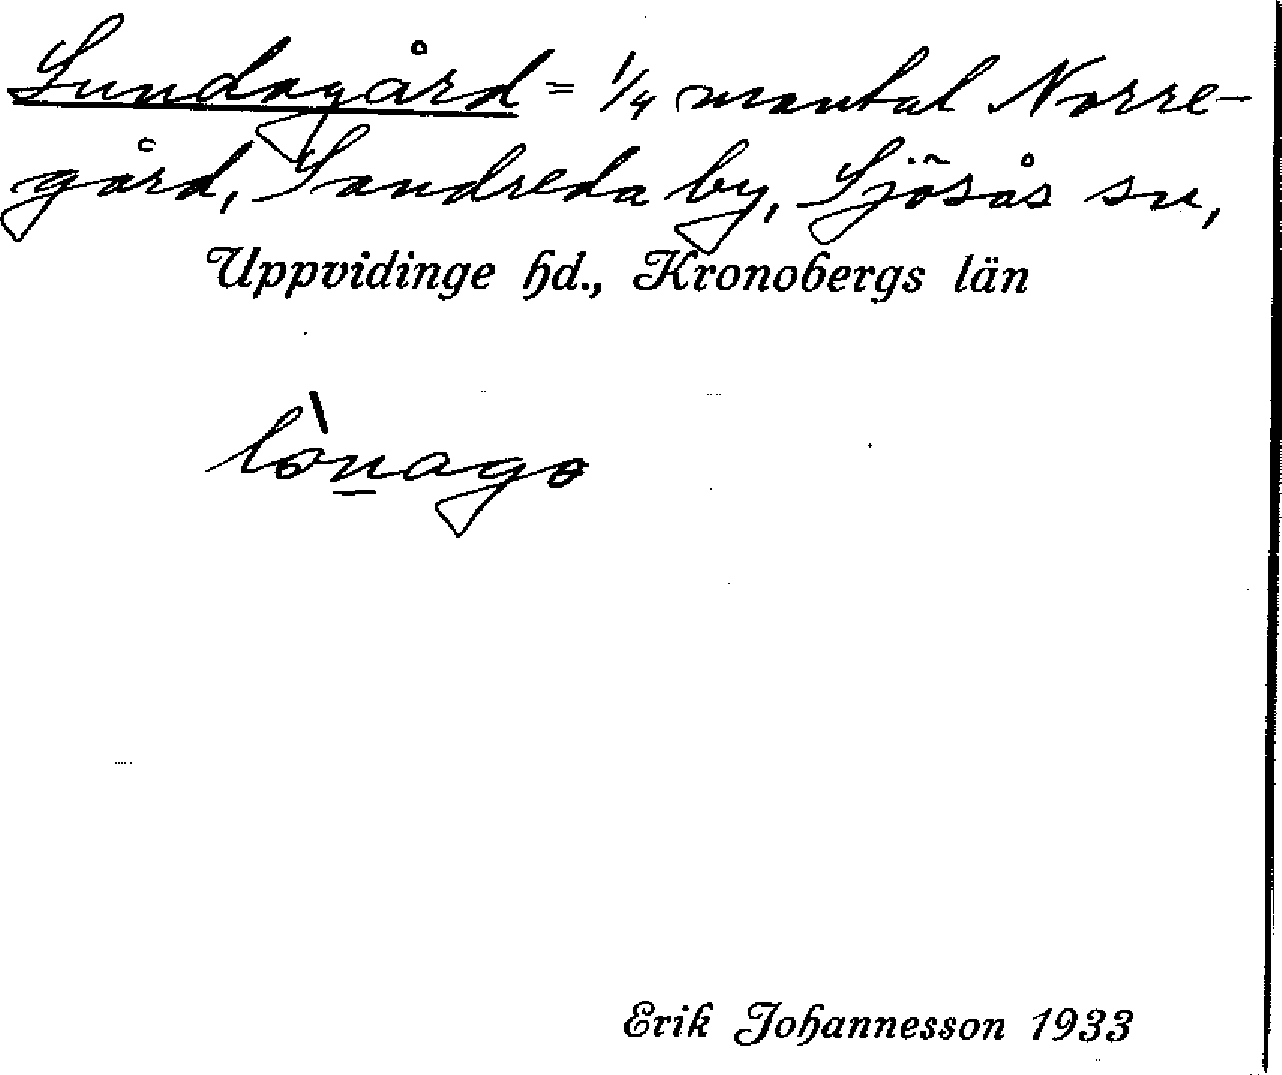 Lundagård = 1/4 mantal Norre-
gård, Sandreda by, Sjösås sn,
Uppvidinge hd., Kronobergs län
lònago
Erik Johannesson 1933